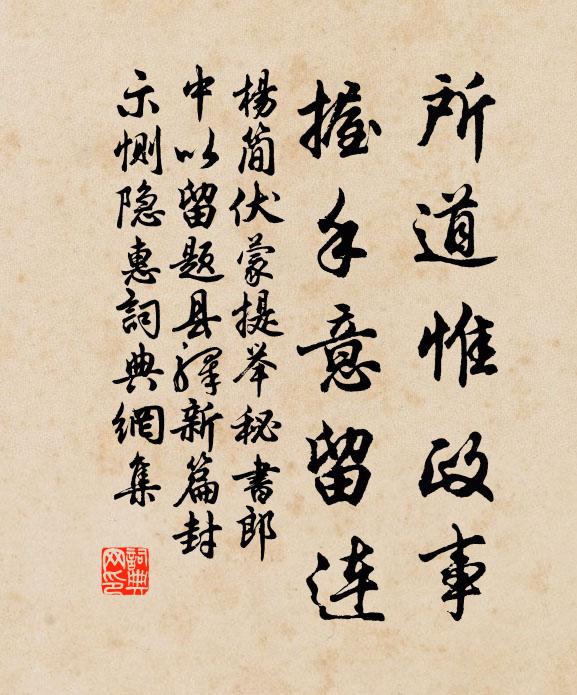 所道惟政事
握手意留连
楊简伏蒙提举秘書郎
中以留题县驿新篇封
示恻隐惠詞典網集
詞典网印